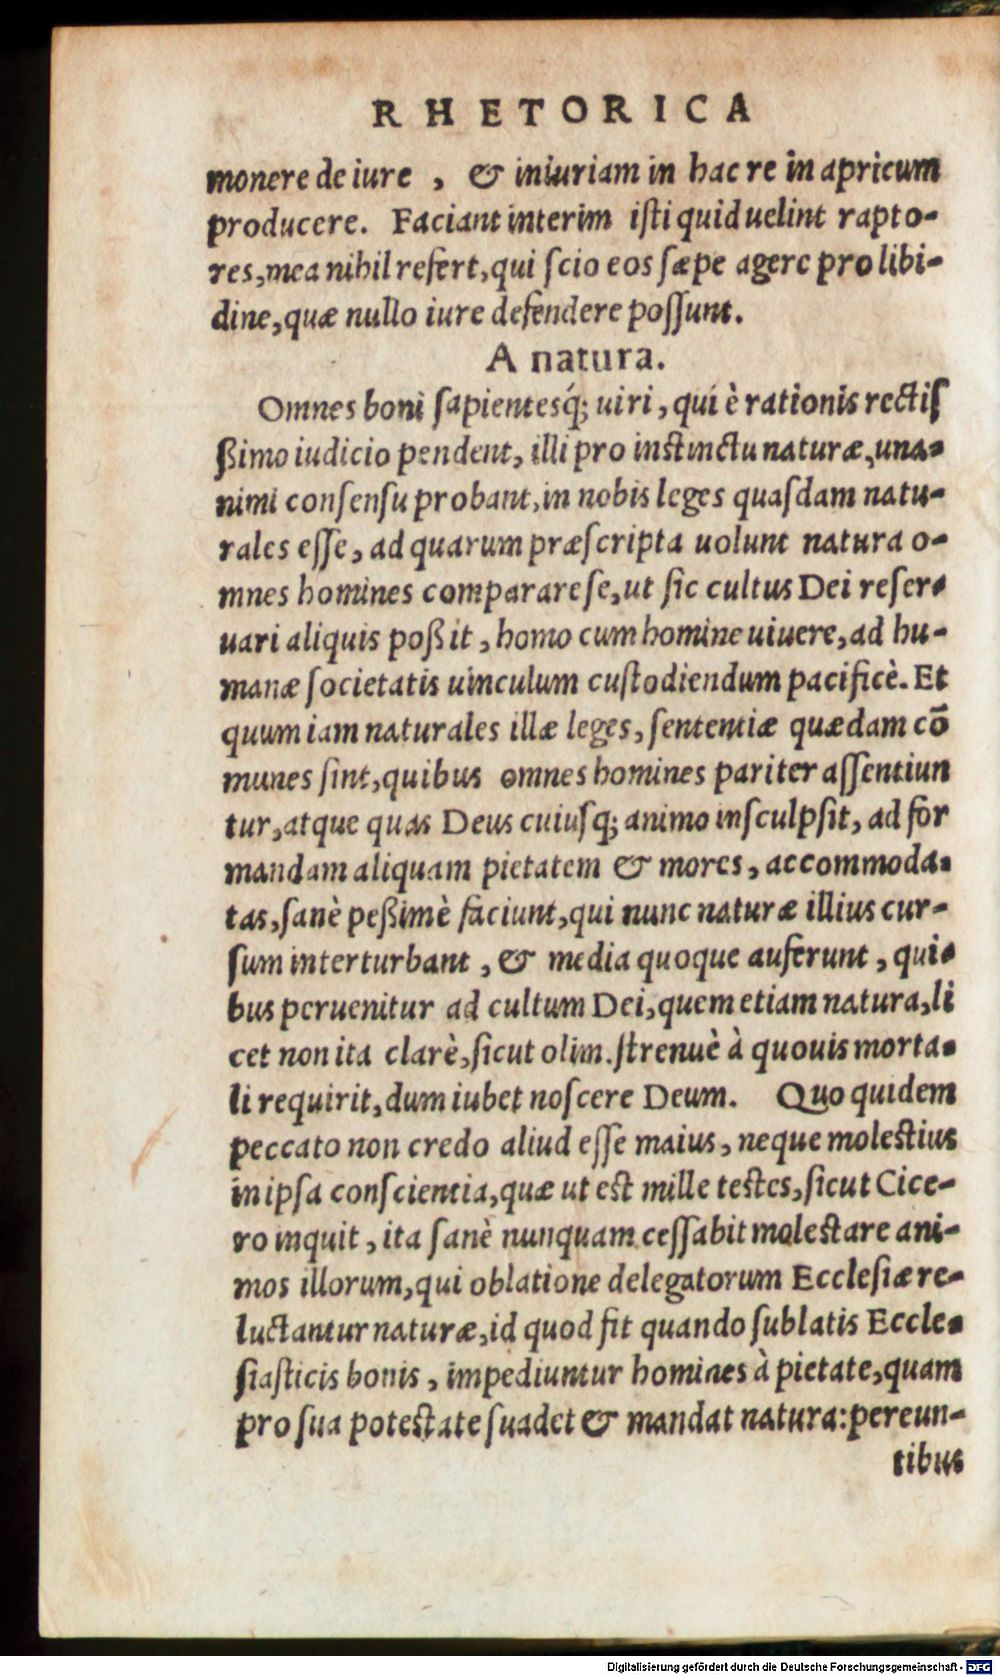 RHETORICA
monere de iure , & iniuriam in hac re in apricum
producere. Faciant interim iſti quid uelint rapto-
res,mea nihil refert,qui ſcio eos ſæpe agere pro libi-
dine,quæ nullo iure defendere poſſunt.
A natura.
Omnes boni ſapientesq́; uiri, qui è rationis rectiſ
ßimo iudicio pendent, illi pro inſtinctu naturæ,una-
nimi conſenſu probant,in nobis leges quaſdam natu-
rales eſſe, ad quarum præſcripta uolunt natura o-
mnes homines comparare ſe,ut ſic cultus Dei reſer-
uari aliquis poßit, homo cum homine uiuere,ad hu-
manæ ſocietatis uinculum cuſtodiendum pacificè. Et
quum iam naturales illæ leges, ſententiæ quædam cō
munes ſint,quibus omnes homines pariter aſſentiun
tur,atque quas Deus cuiuſq; animo inſculpſit, ad for
mandam aliquam pietatem & mores, accommoda-
tas,ſanè peßimè faciunt,qui nunc naturæ illius cur-
ſum interturbant , & media quoque auferunt , qui-
bus peruenitur ad cultum Dei,quem etiam natura,li
cet non ita clarè,ſicut olim.ſtrenuè à quouis morta-
li requirit,dum iubet noſcere Deum. Quo quidem
peccato non credo aliud eſſe maius, neque moleſtius
in ipſa conſcientia,quæ ut eſt mille teſtes,ſicut Cice-
ro inquit, ita ſanè nunquam ceſſabit moleſtare ani-
mos illorum,qui oblatione delegatorum Eccleſiæ re-
luctantur naturæ,id quod fit quando ſublatis Eccle-
ſiaſticis bonis, impediuntur homines à pietate,quam
pro ſua poteſtate ſuadet & mandat natura:pereun-
tibus
Digitalisierung gefördert durch die Deutsche Forschungsgemeinschaft - DFG